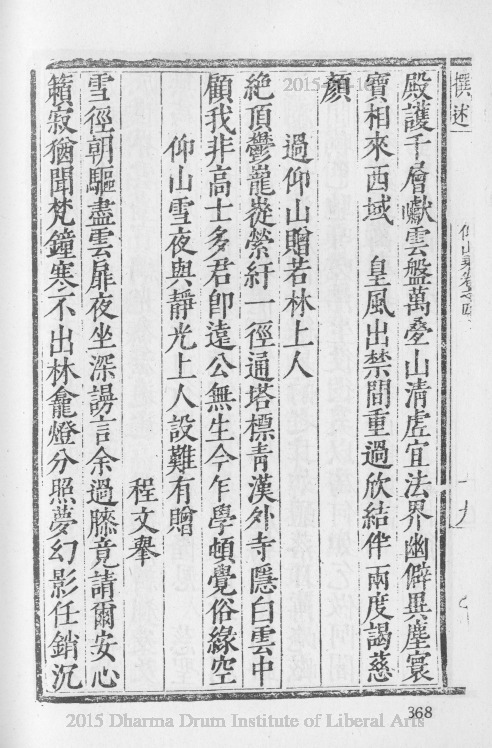 撰述
仰山乘卷之四
十九
殿護千層巘雲盤萬疊山清虛宜法界幽僻異塵寰
寶相來西域　皇風出禁間重過欣結伴兩度謁慈
顏
過仰山贈若林上人
絶頂鬱巃嵸縈紆一徑通塔標青漢外寺隱白雲中
顧我非高士多君即遠公無生今乍學頓覺俗緣空
仰山雪夜與靜光上人設難有贈
程文舉
雪徑朝驅盡雲扉夜坐深謗言余過膝竟請爾安心
籟寂猶聞梵鐘寒不出林龕燈分照夢幻影任銷沉
368
2015 Dharma Drum Institute of Liberal Arts